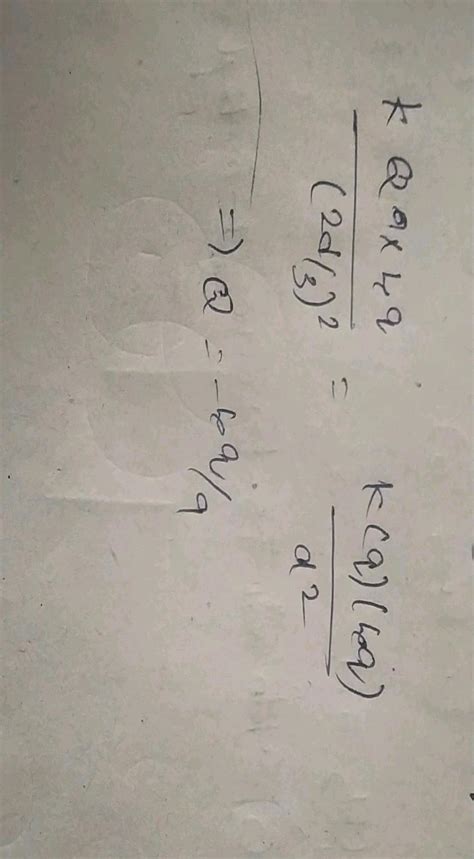 k Q q × 4q / (2d/3)² = k(q)(4q) / d²
⇒ Q = -4q/9